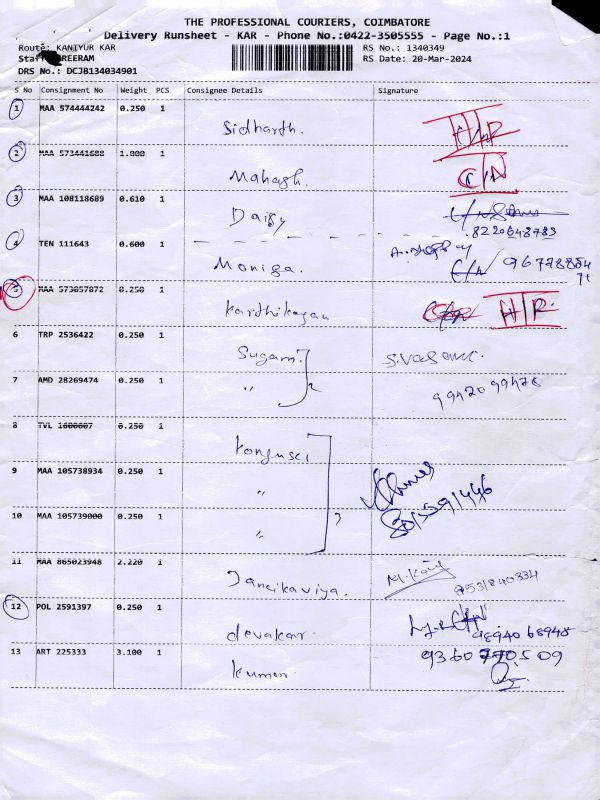 THE PROFESSIONAL COURIERS, COIMBATORE
Delivery Runsheet - KAR - Phone No.:0422-3505555 - Page No.:1
Route: KANIYUR KAR RS No.: 1340349
REERAM RS Date: 20-Mar-2024
DRS No.: DCJB134034901
S No Consignment No Weight PCS Consignee Details Signature
1 MAA 574444242 0.250 1
Sidharth.
2 MAA 573441688 1.000 1 C/N
Mahagh.
3 MAA 108118689 0.610 1
Daisy
8220648783
4 TEN 111643 0.600 1
Moniga. C/N
5 MAA 573057872 0.250 1
Karthikagan H/R.
6 TRP 2536422 0.250 1
Sugam.
7 AMD 28269474 0.250 1
"
8 TVL 1600607 0.250 1
9 MAA 105738934 0.250 1
"
10 MAA 105739000 0.250 1
"
11 MAA 865023948 2.220 1
Jancikaviya.
12 POL 2591397 0.250 1
devakar. 9894068948
13 ART 225333 3.100 1 9360770509
kumar.